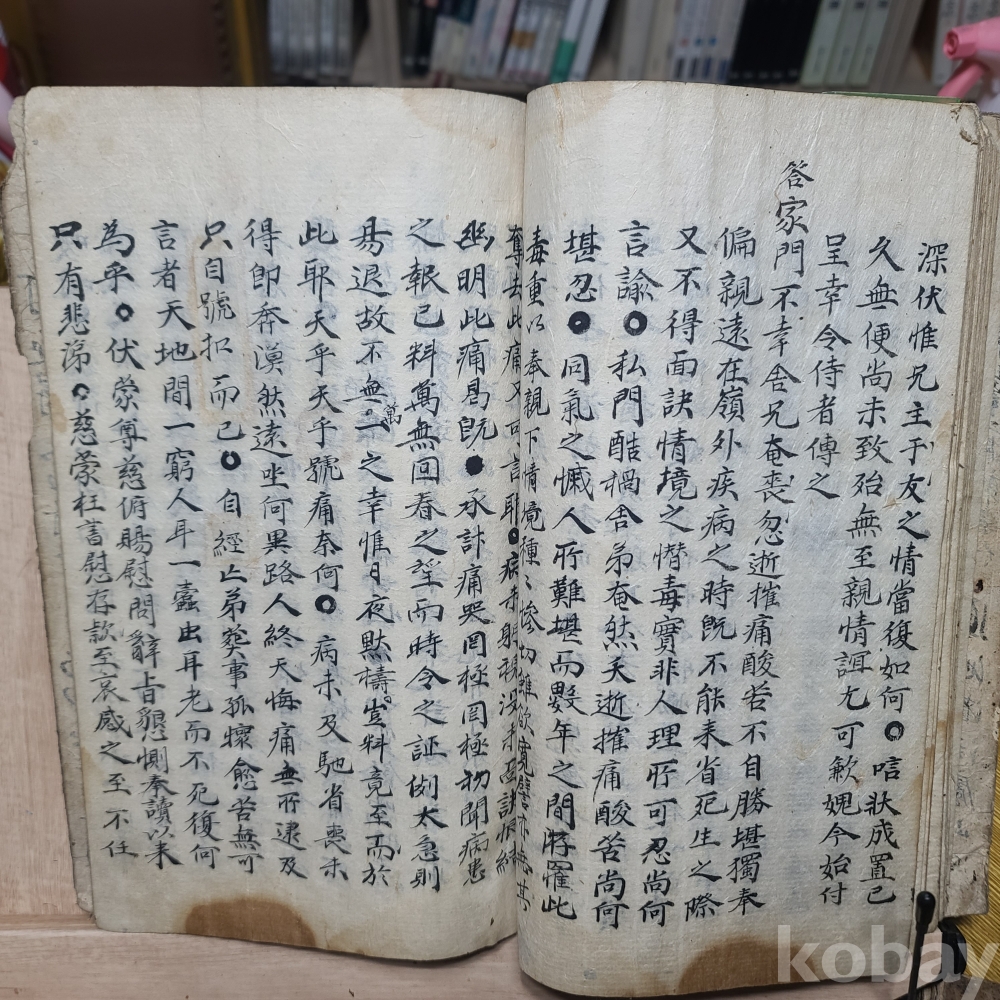 深伏惟兄主于友之情當復如何○唁狀成置已
久無便尚未致殆無至親情誼尤可歉媿今始付
呈幸令侍者傳之
答家門不幸舍兄奄喪忽逝摧痛酸苦不自勝堪獨奉
偏親遠在嶺外疾病之時旣不能來省死生之際
又不得面訣情境之憯毒實非人理所可忍尚何
言諭○私門酷禍舍弟奄然夭逝摧痛酸苦尚何
堪忍○同氣之慽人所難堪而數年之間荐罹此
毒重以奉親下情境種〻慘切雖欲寬譬亦無其
奪去此痛又可言耶○病未躬視沒未面訣
幽明此痛曷旣●承訃痛哭罔極罔極初聞病患
之報已料萬無回春之望而時令之証例太急則
易退故不無萬一之幸惟日夜默禱豈料竟至而於
此耶天乎天乎號痛奈何○病未及馳省喪未
得即奔漠然遠坐何異路人終天悔痛無所逮及
只自號扣而已○自經亡弟葬事孤懷愈苦無可
言者天地間一窮人耳一蠹虫耳老而不死復何
為乎○伏蒙尊慈俯賜慰問辭旨懇惻奉讀以來
只有悲涕○慈蒙枉書慰存款至哀感之至不任
kobay